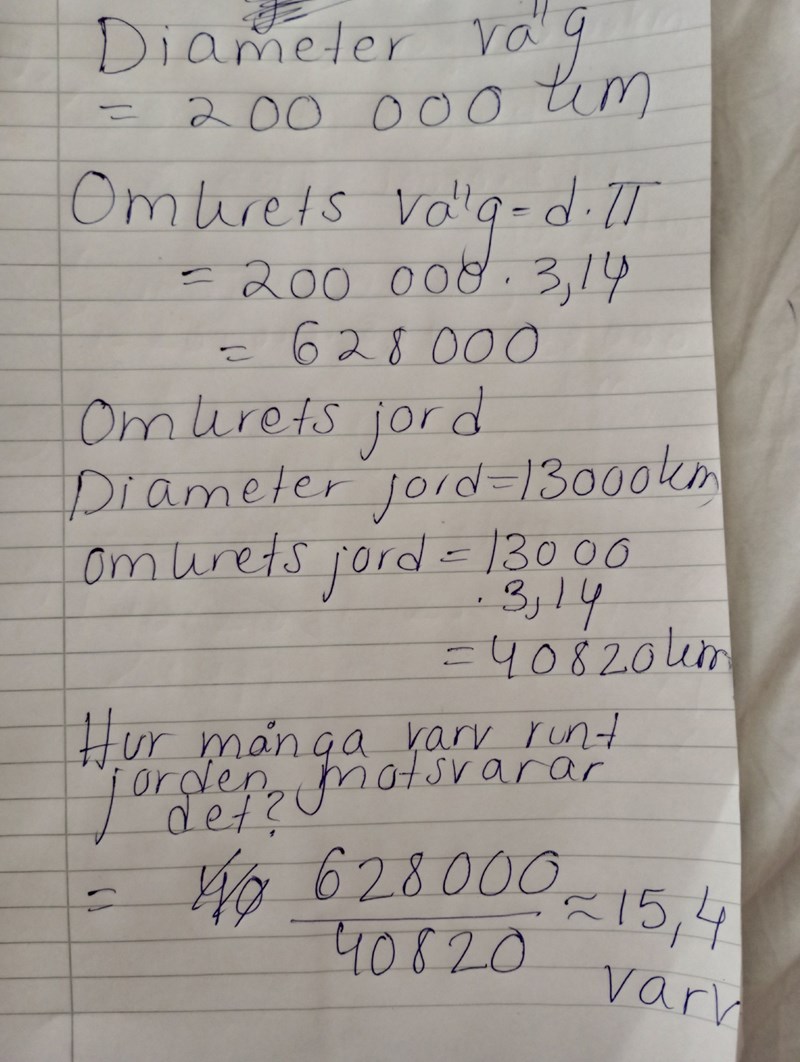 Diameter väg
= 200 000 km
Omkrets väg = d · π
= 200 000 · 3,14
= 628 000
Omkrets jord
Diameter jord = 13000 km
omkrets jord = 13000
· 3,14
= 40820 km
Hur många varv runt
jorden motsvarar
det?
= 628000 / 40820 ≈ 15,4
varv